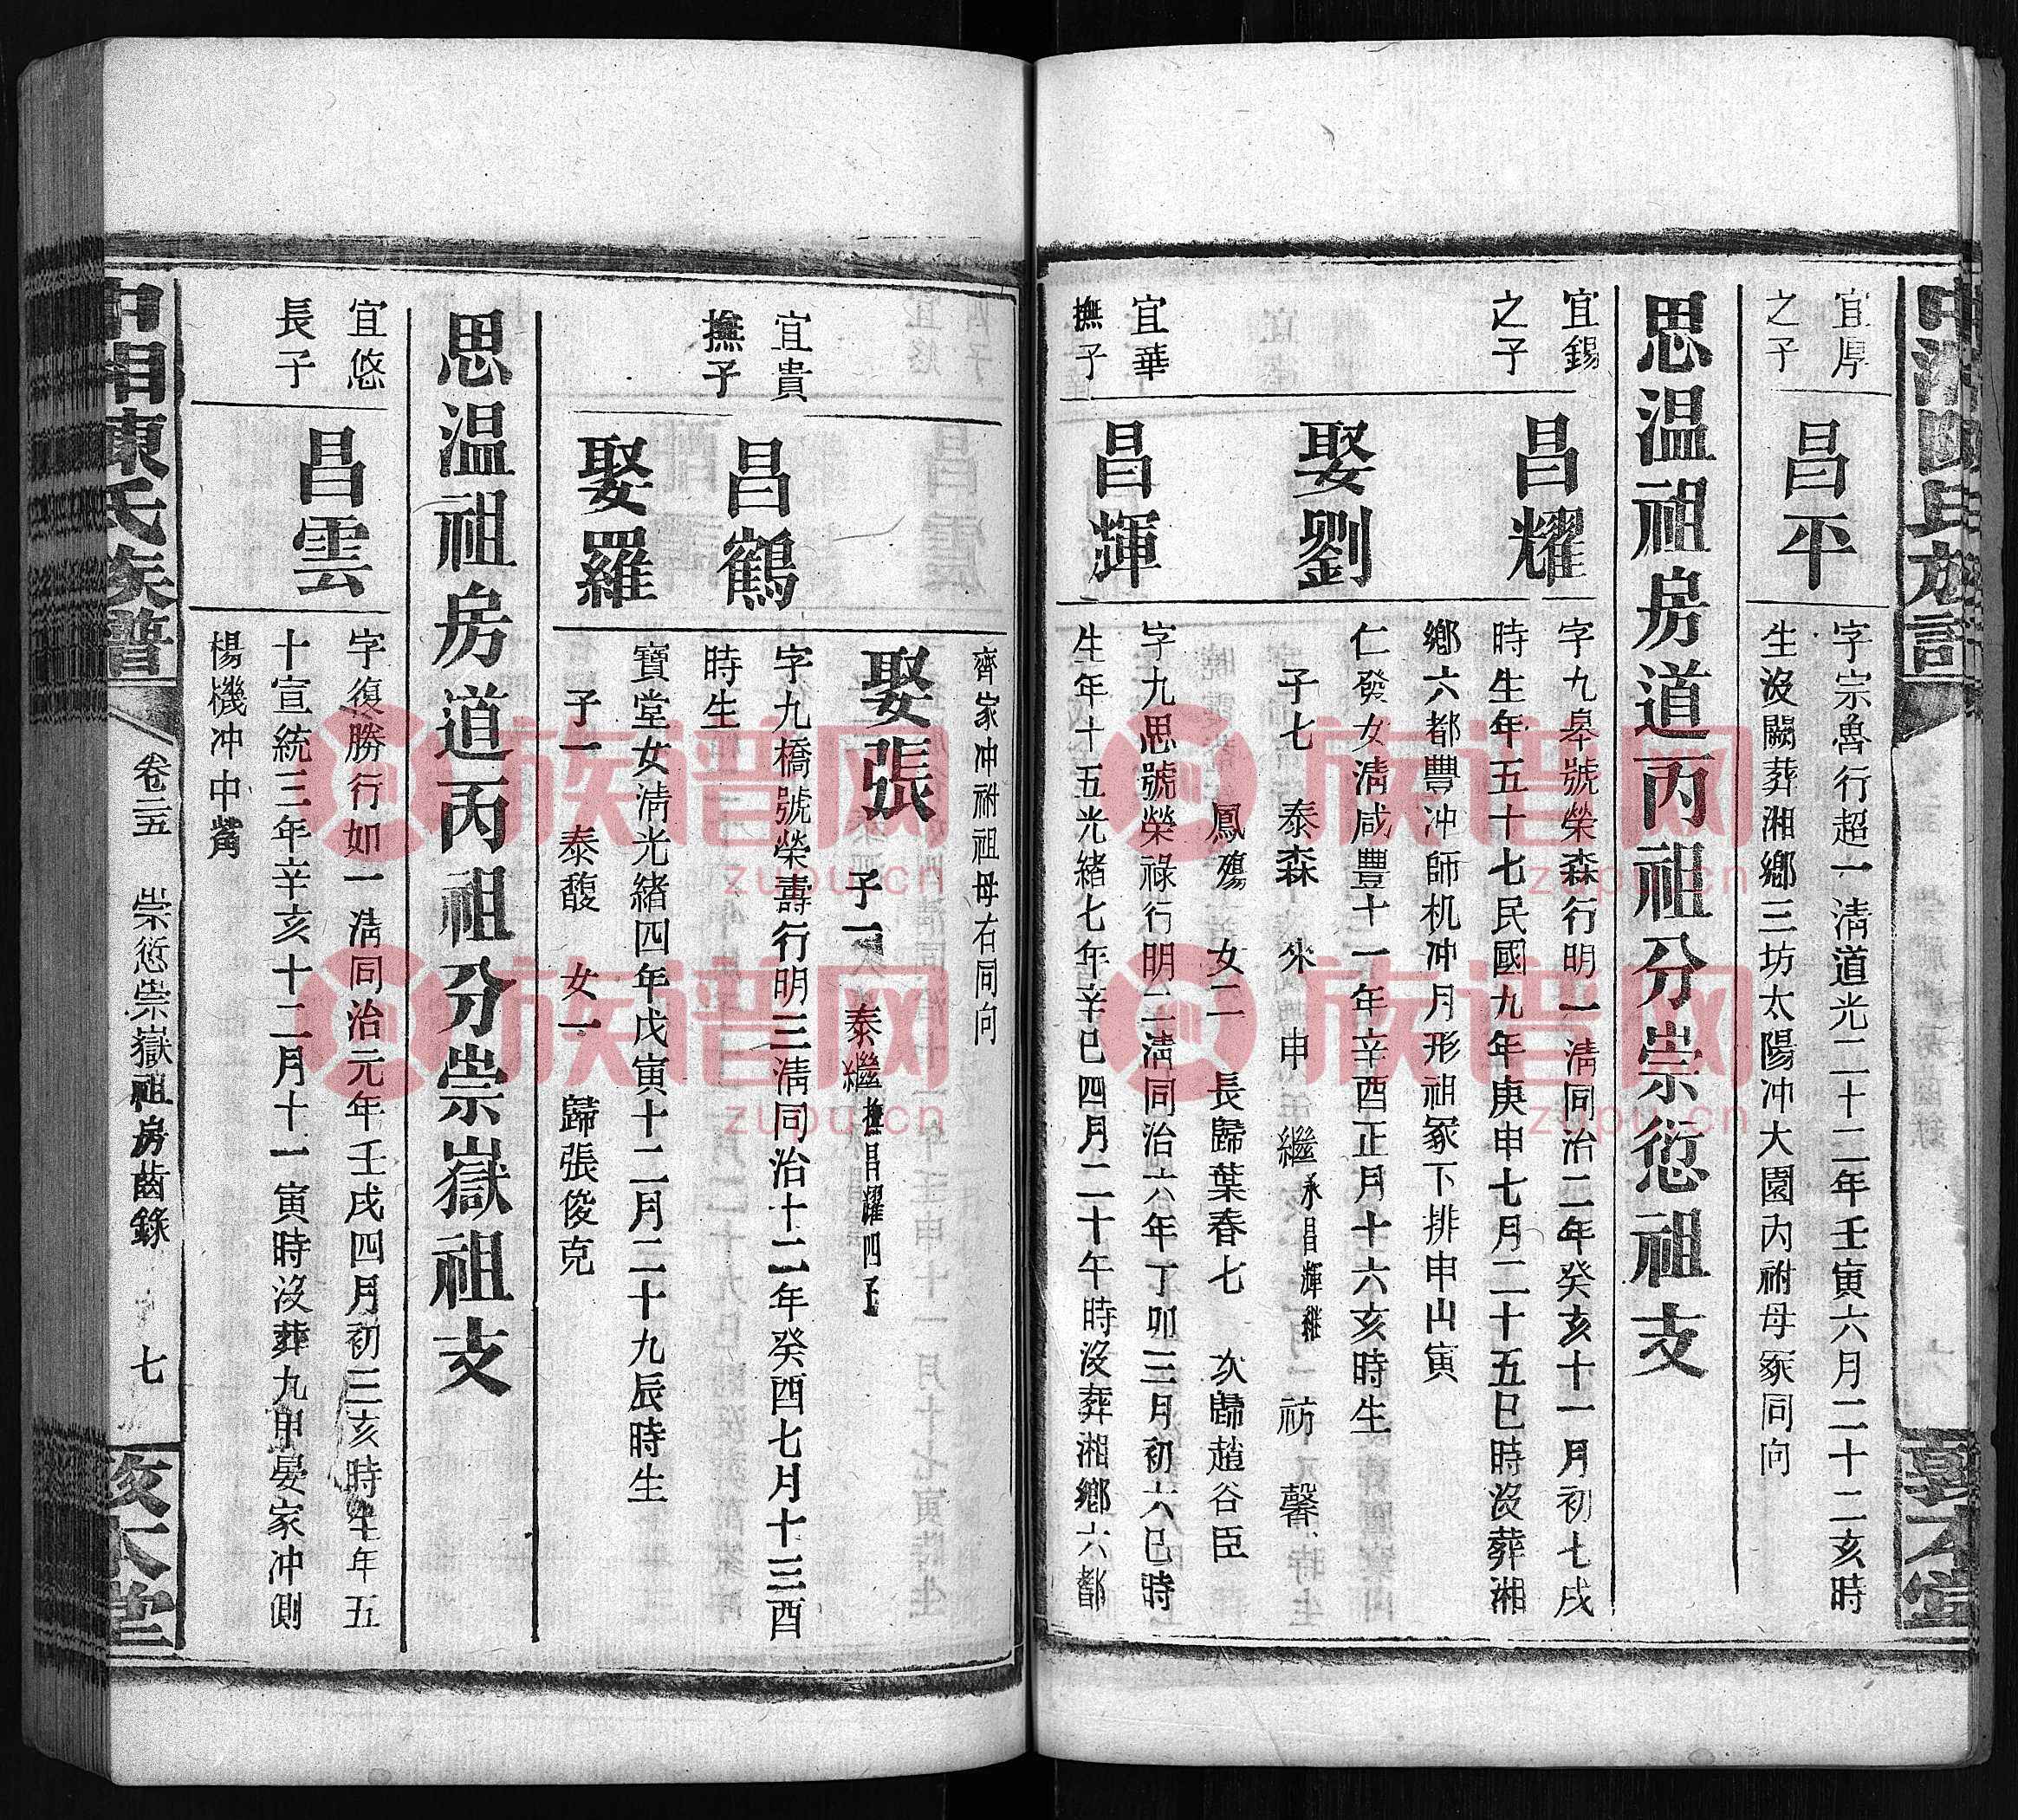 宜厚
之子
昌平
字宗魯行超一淸道光二十二年壬寅六月二十二亥時
生沒闕葬湘鄉三坊太陽冲大園內祔母冢同向
思温祖房道丙祖分崇愆祖支
宜錫
之子
昌耀
字九皋號榮森行明一淸同治二年癸亥十一月初七戌
時生年五十七民國九年庚申七月二十五巳時沒葬湘
鄉六都豐冲師机冲月形祖冢下排申山寅
娶劉
仁發女淸咸豐十一年辛酉正月十六亥時生
子七 泰森 炎 申 繼承昌輝繼 祊 馨
鳳殤 女二 長歸葉春七 次歸趙谷臣
宜華
撫子
昌輝
字九思號榮祿行明二淸同治六年丁卯三月初六巳時
生年十五光緒七年辛巳四月二十午時沒葬湘鄉六都
齊家冲祔祖母右同向
娶張
子一 泰繼撫昌耀四子
宜貴
撫子
昌鶴
字九橋號榮壽行明三淸同治十二年癸酉七月十三酉
時生
娶羅
寶堂女淸光緒四年戊寅十二月二十九辰時生
子一 泰馥 女一 歸張俊克
思温祖房道丙祖分崇嶽祖支
宜悠
長子
昌雲
字復勝行如一淸同治元年壬戌四月初三亥時生年五
十宣統三年辛亥十二月十一寅時沒葬九甲晏家冲側
楊機冲中嘴
中湘陳氏族譜
卷二五 崇愆崇嶽祖房齒錄 七
敦本堂
族谱网
zupu.cn
族谱网
zupu.cn
族谱网
zupu.cn
族谱网
zupu.cn